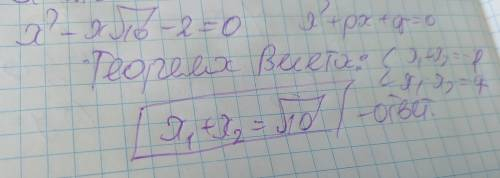 x² - x√10 - 2 = 0
x² + px + q = 0
Теорема Виета: { x₁ + x₂ = -p
{ x₁ x₂ = q
x₁ + x₂ = √10 - ответ.